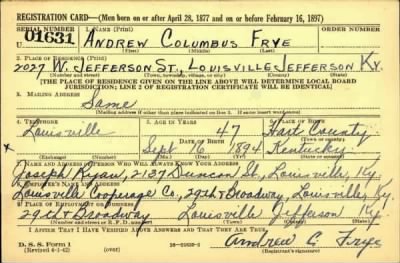 REGISTRATION CARD—(Men born on or after April 28, 1877 and on or before February 16, 1897)
SERIAL NUMBER 1. NAME (Print) ORDER NUMBER
U1631 ANDREW COLUMBUS FRYE
(First) (Middle) (Last)
2. PLACE OF RESIDENCE (Print)
2027 W. JEFFERSON ST., LOUISVILLE JEFFERSON KY.
(Number and street) (Town, township, village, or city) (County) (State)
[THE PLACE OF RESIDENCE GIVEN ON THE LINE ABOVE WILL DETERMINE LOCAL BOARD
JURISDICTION; LINE 2 OF REGISTRATION CERTIFICATE WILL BE IDENTICAL]
3. MAILING ADDRESS
Same
(Mailing address if other than place indicated on line 2. If same insert word same)
4. TELEPHONE 5. AGE IN YEARS 6. PLACE OF BIRTH
Louisville 47 Hart County
DATE OF BIRTH (Town or county)
Sept 16 1894 Kentucky
(Exchange) (Number) (Mo.) (Day) (Yr.) (State or country)
7. NAME AND ADDRESS OF PERSON WHO WILL ALWAYS KNOW YOUR ADDRESS
Joseph Ryan, 2137 Duncan St., Louisville, Ky.
8. EMPLOYER'S NAME AND ADDRESS
Louisville Cooperage Co., 29th & Broadway, Louisville, Ky
9. PLACE OF EMPLOYMENT OR BUSINESS
29th & Broadway Louisville Jefferson Ky.
(Number and street or R. F. D. number) (Town) (County) (State)
I AFFIRM THAT I HAVE VERIFIED ABOVE ANSWERS AND THAT THEY ARE TRUE.
D. S. S. Form 1
(Revised 4-1-42) (over) Andrew C. Frye